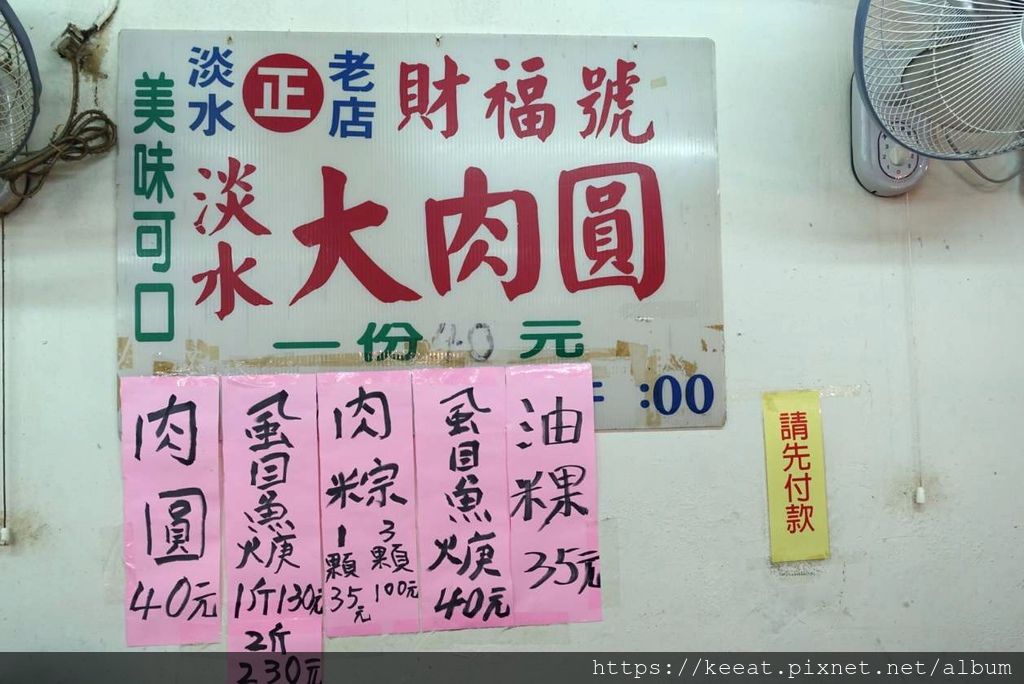 美味可口
淡水
正
老店
財福號
淡水
大肉圓
一份40元
:00
肉圓
40元
虱目魚焿
1斤130元
2斤
230元
肉粽
1顆
35元
3顆
100元
虱目魚焿
40元
油粿
35元
請先付款
https://keeat.pixnet.net/album